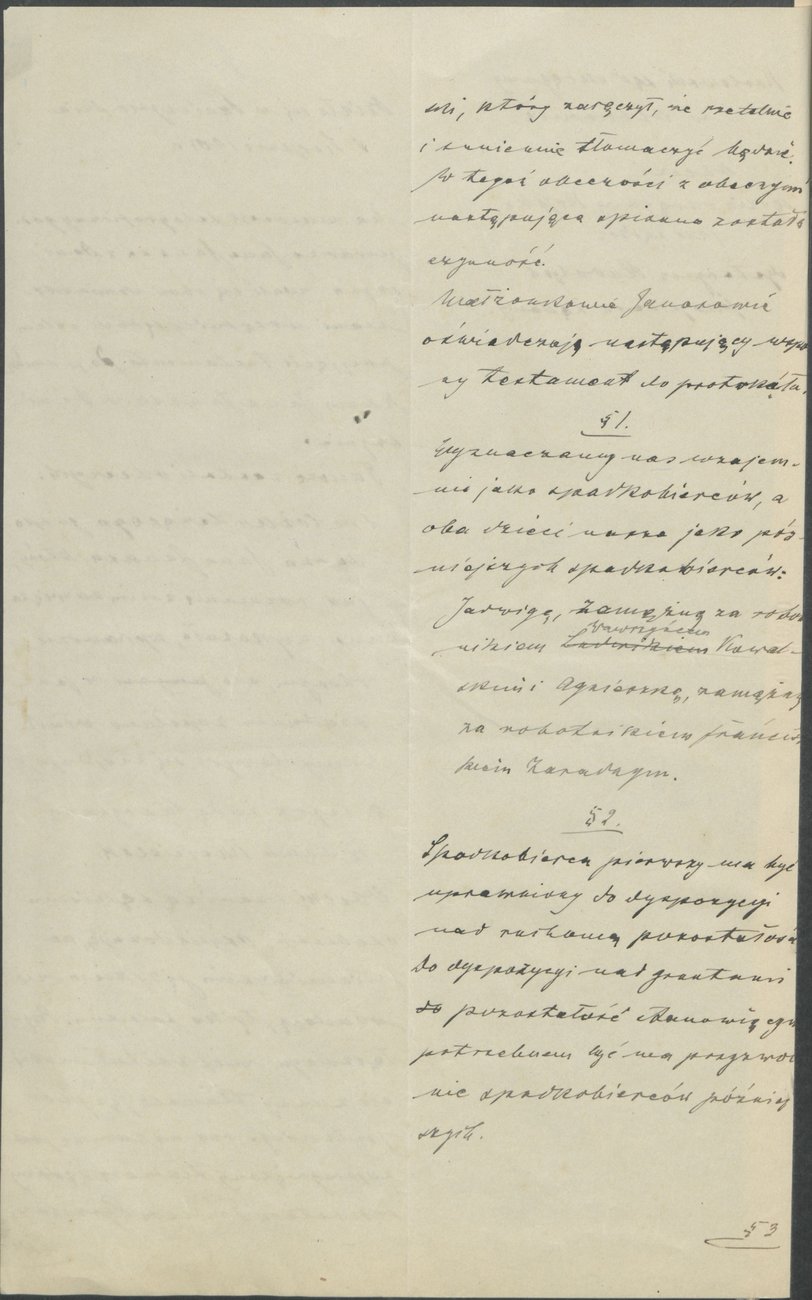 ski, który zaręczył, że rzetelnie
i sumiennie tłomaczyć będzie.
W tegoż obecności z obecnymi
następująca spisana została
czynność.
Małżonkowie Janosowie
oświadczają następujący wspó
ny testament do protokółu.
§ 1.
Wyznaczamy nas wzajem-
nie jako spadkobierców, a
oba dzieci nasze jako póź-
niejszych spadkobierców:
Jadwigę, zamężną za robo
Wawrzyńcem
nikiem Ludwikiem Kowal-
skim i Agnieszkę, zamężną
za robotnikiem Francisz
kiem Zaradnym.
§ 2.
Spadkobierca pierwszy ma być
uprawniony do dyspozycyi
nad ruchomą pozostałością
Do dyspozycyi nad gruntami
do pozostałość stanowiącymi
potrzebnem być ma przyzwole
nie spadkobierców później
szych.
§ 3